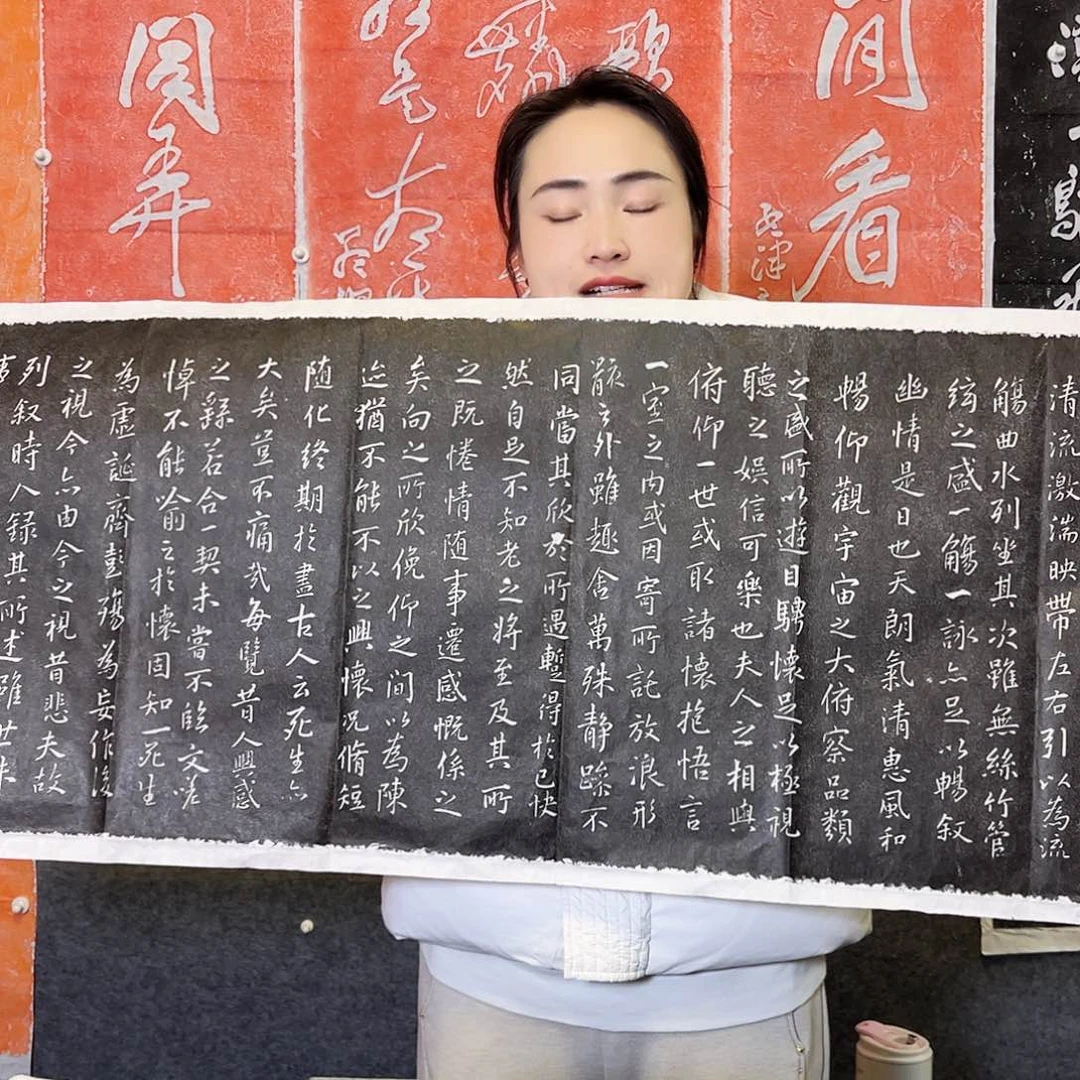 清流激湍映帶左右引以為流
觴曲水列坐其次雖無絲竹管
絃之盛一觴一詠亦足以暢叙
幽情是日也天朗氣清惠風和
暢仰觀宇宙之大俯察品類
之盛所以遊目騁懷足以極視
聽之娛信可樂也夫人之相與
俯仰一世或取諸懷抱悟言
一室之內或因寄所託放浪形
骸之外雖趣舍萬殊静躁不
同當其欣於所遇蹔得於己快
然自足不知老之將至及其所
之既惓情随事遷感慨係之
矣向之所欣俛仰之間以為陳
迹猶不能不以之興懷況脩短
随化終期於盡古人云死生亦
大矣豈不痛哉每覽昔人興感
之繇若合一契未嘗不臨文嗟
悼不能喻之於懷固知一死生
為虛誕齊彭殤為妄作後
之視今亦由今之視昔悲夫故
列叙時人錄其所述雖世殊
事
看
弄